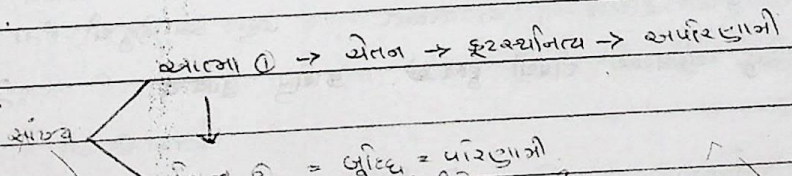 આત્મા ① → ચેતન → કૂટસ્થનિત્ય → અપરિણામી
સાંખ્ય
= બુધ્ધિ = પરિણામી